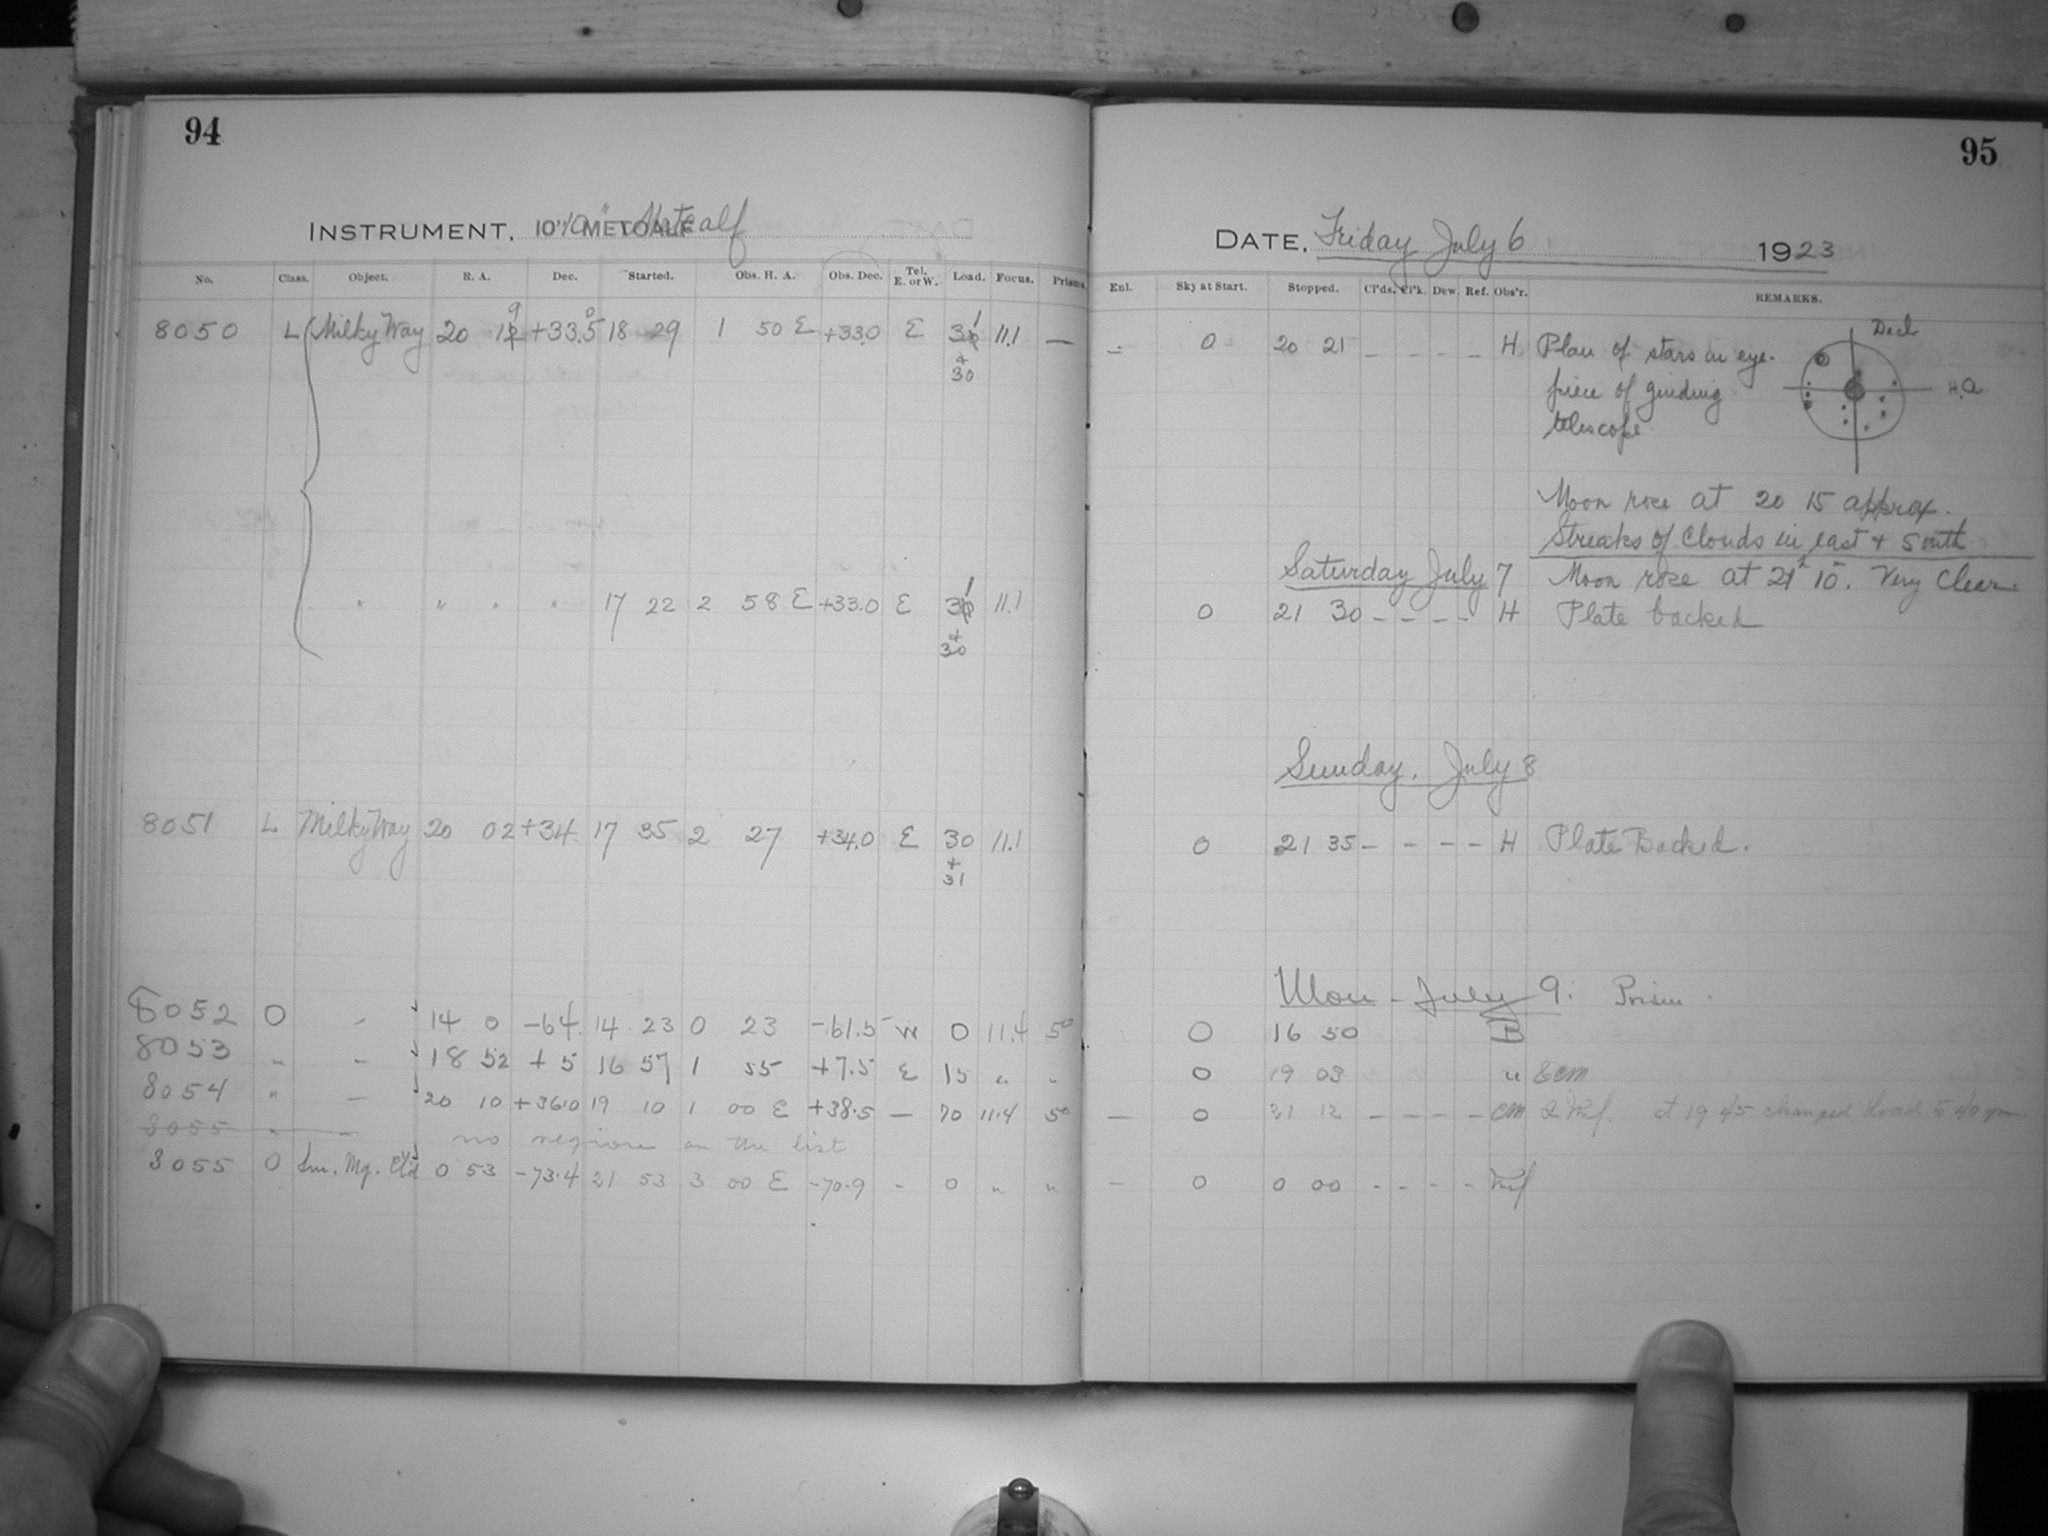 94
INSTRUMENT, 10" METCALF 10" Metcalf
No. Class. Object. R. A. Dec. Started. Obs. H. A. Obs. Dec. Tel. E. or W. Load. Focus. Prism.
9 0 1
8050 L Milky Way 20 12 +33.5 18 29 1 50 E +33.0 E 30 11.1 —
+
30
1
" " " " 17 22 2 58 E +33.0 E 30 11.1
+
30
8051 L Milky Way 20 02 +34. 17 35 2 27 +34.0 E 30 11.1
+
31
8052 O - 14 0 -64. 14 23 0 23 -61.5 W 0 11.4 50
8053 " - 18 52 +5 16 57 1 55 +7.5 E 15 " "
8054 " - 20 10 +36.0 19 10 1 00 E +38.5 — 70 11.4 50
8055 " — no region on the list
8055 O Sm. Mg. Cld 0 53 -73.4 21 53 3 00 E -70.9 - 0 " "
95
DATE, Friday July 6 1923
Enl. Sky at Start. Stopped. Cl'ds. Cl'k. Dew. Ref. Obs'r. REMARKS.
- 0 20 21 - - - - H Plan of stars in eye-
piece of guiding
telescope
Decl.
H.A
Moon rose at 20 15 approx.
Streaks of Clouds in east + South
Saturday July 7 Moon rose at 21h 10. Very Clear
0 21 30 - - - - H Plate backed
Sunday. July 8
0 21 35 - - - - H Plate Backed.
Mon - July 9: Prism.
0 16 50 B
0 19 03 " & CM
— 0 21 12 - - - - CM at 19 45 changed Load to 40 gm.
- 0 0 00 - - - -